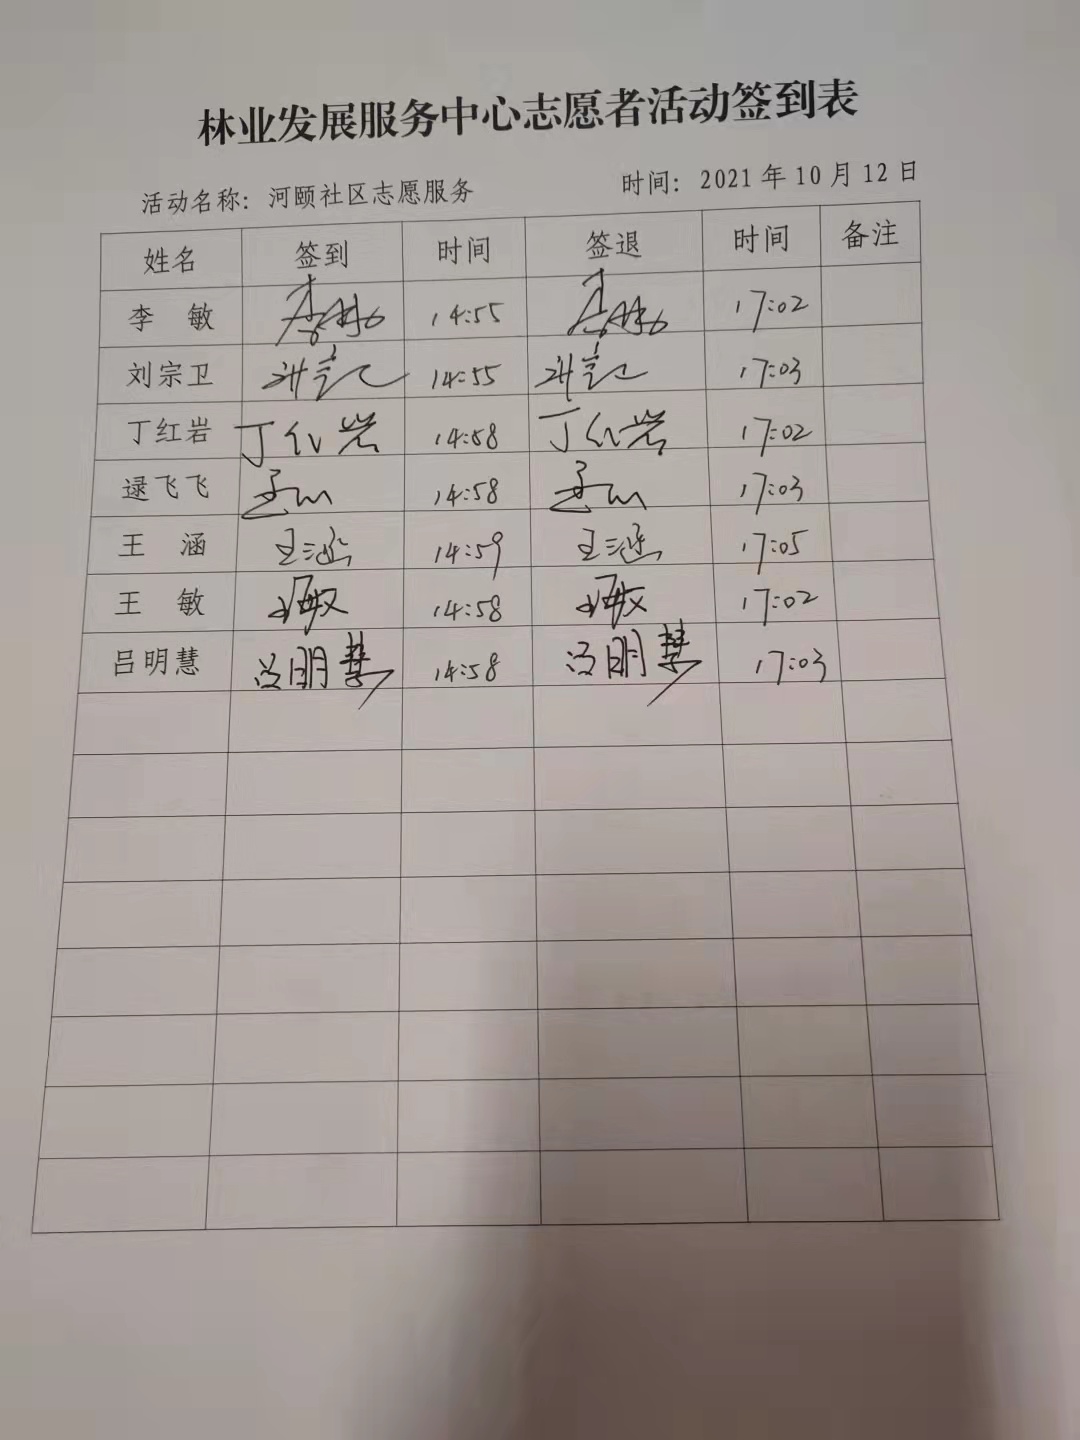 林业发展服务中心志愿者活动签到表
活动名称：河颐社区志愿服务 时间：2021年10月12日
姓名 签到 时间 签退 时间 备注
李 敏 李敏 14:55 李敏 17:02
刘宗卫 14:55 17:03
丁红岩 丁红岩 14:58 丁红岩 17:02
逯飞飞 14:58 17:03
王 涵 王涵 14:59 王涵 17:05
王 敏 王敏 14:58 王敏 17:02
吕明慧 吕明慧 14:58 吕明慧 17:03